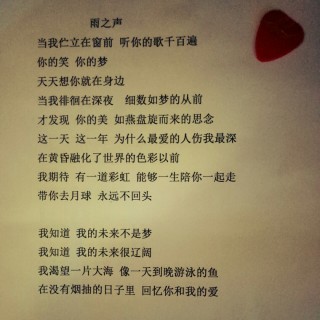 雨之声
当我伫立在窗前 听你的歌千百遍
你的笑 你的梦
天天想你就在身边
当我徘徊在深夜 细数如梦的从前
才发现 你的美 如燕盘旋而来的思念
这一天 这一年 为什么最爱的人伤我最深
在黄昏融化了世界的色彩以前
我期待 有一道彩虹 能够一生陪你一起走
带你去月球 永远不回头
我知道 我的未来不是梦
我知道 我的未来很辽阔
我渴望一片大海 像一天到晚游泳的鱼
在没有烟抽的日子里 回忆你和我的爱